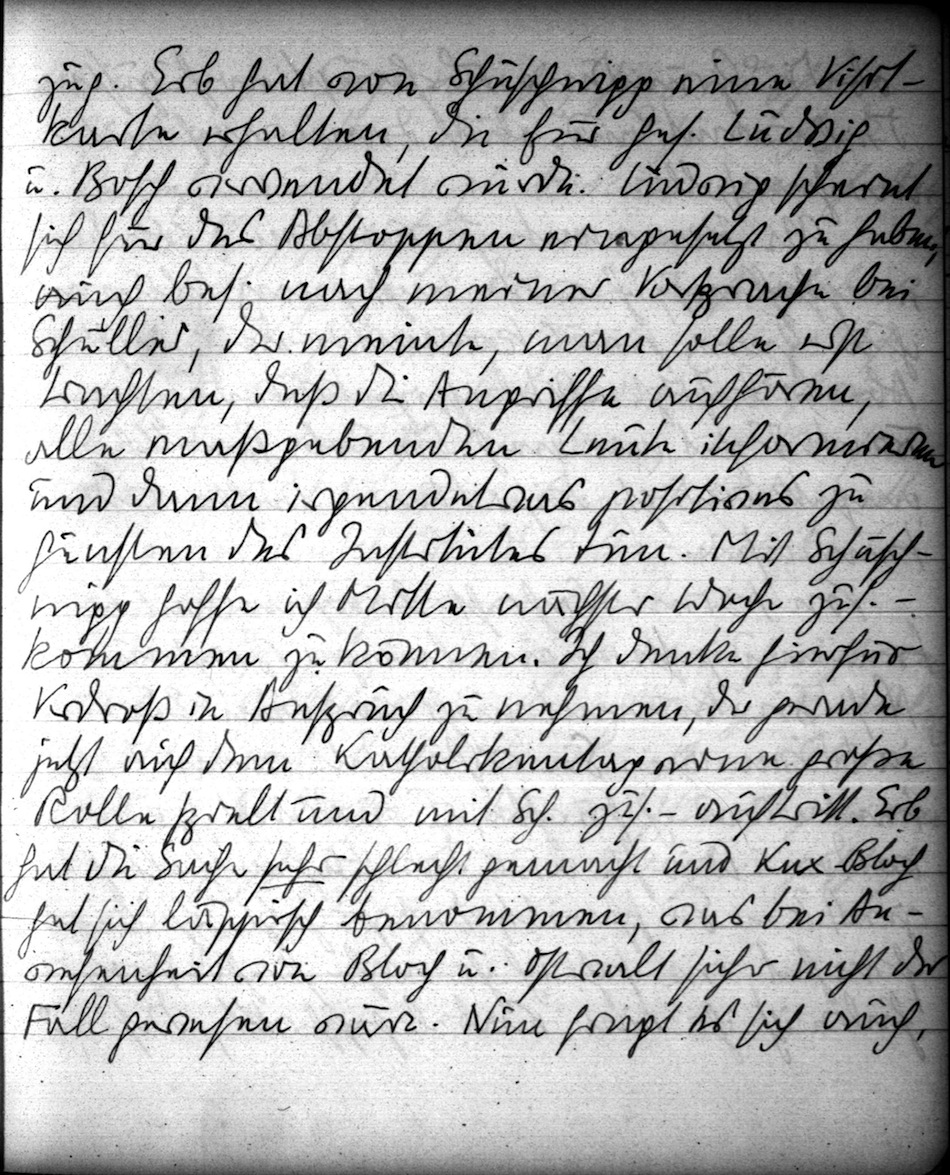 zug. Erb hat von Schuschnigg eine Visit-
karte erhalten, die für Hof. Ludwig
u. Bosch verwendet wurde. Ludwig scheint
sich für das Abstoppen eingesetzt zu haben,
auch bes. nach meiner Vorsprache bei
Schüller, der meinte, man solle erst
trachten, daß die Angriffe aufhören,
alle maßgebenden Leute informieren
und dann irgendetwas positives zu
gunsten des Institutes tun. Mit Schusch-
nigg hoffe ich Mitte nächster Woche zus.-
kommen zu können. Ich denke hierfür
Verdroß in Anspruch zu nehmen, der gerade
jetzt auf dem Katholikentag eine große
Rolle spielt und mit Sch. zus.- auftritt. Erb
hat die Sache sehr schlecht gemacht und Kux-Bloch
hat sich läppisch benommen, was bei An-
wesenheit von Bloch u. Ostwalt sicher nicht der
Fall gewesen wäre. Nun fragt es sich auch,